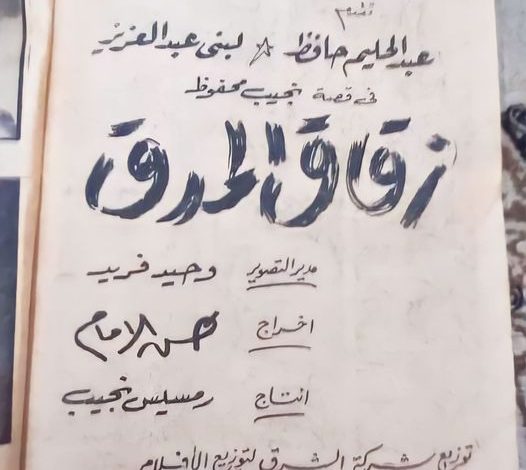 تقدم
عبد الحليم حافظ ☆ لبنى عبد العزيز
فى قصة نجيب محفوظ
زقاق المدق
مدير التصوير وحيد فريد
اخراج حسن الامام
انتاج رمسيس نجيب
توزيع شركة الشرق لتوزيع الأفلام